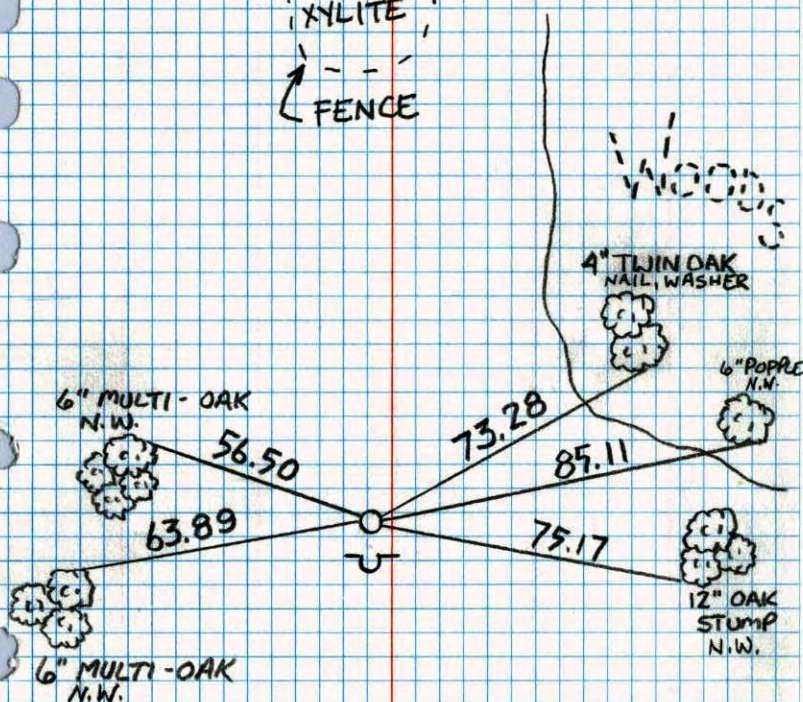 XYLITE
FENCE
Woods
4" TWIN OAK
NAIL, WASHER
6" POPPLE
N.W.
6" MULTI - OAK
N.W.
56.50
73.28
85.11
63.89
75.17
12" OAK
STUMP
N.W.
6" MULTI - OAK
N.W.